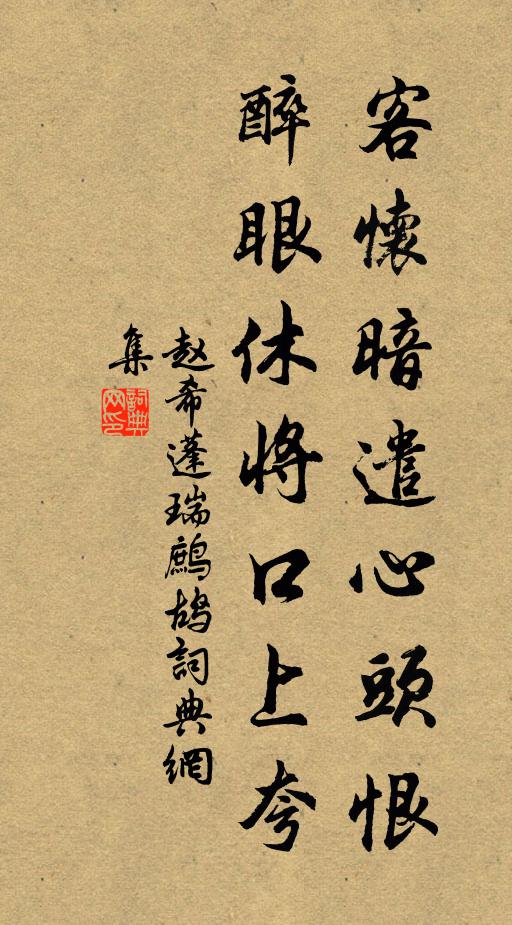 客懷暗遣心頭恨
醉眼休將口上夸
赵希蓬瑞鷓鴣詞典網
集
詞典
网印